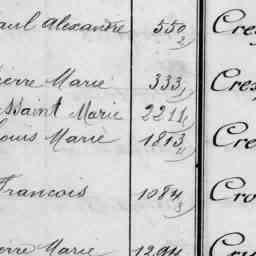 aul Alexandre 550 Cre
ierre Marie 333 Cres
ssaint Marie 2211
ouis Marie 1813 Cre
Francois 1084 Cro
ierre Marie 1294 Cru